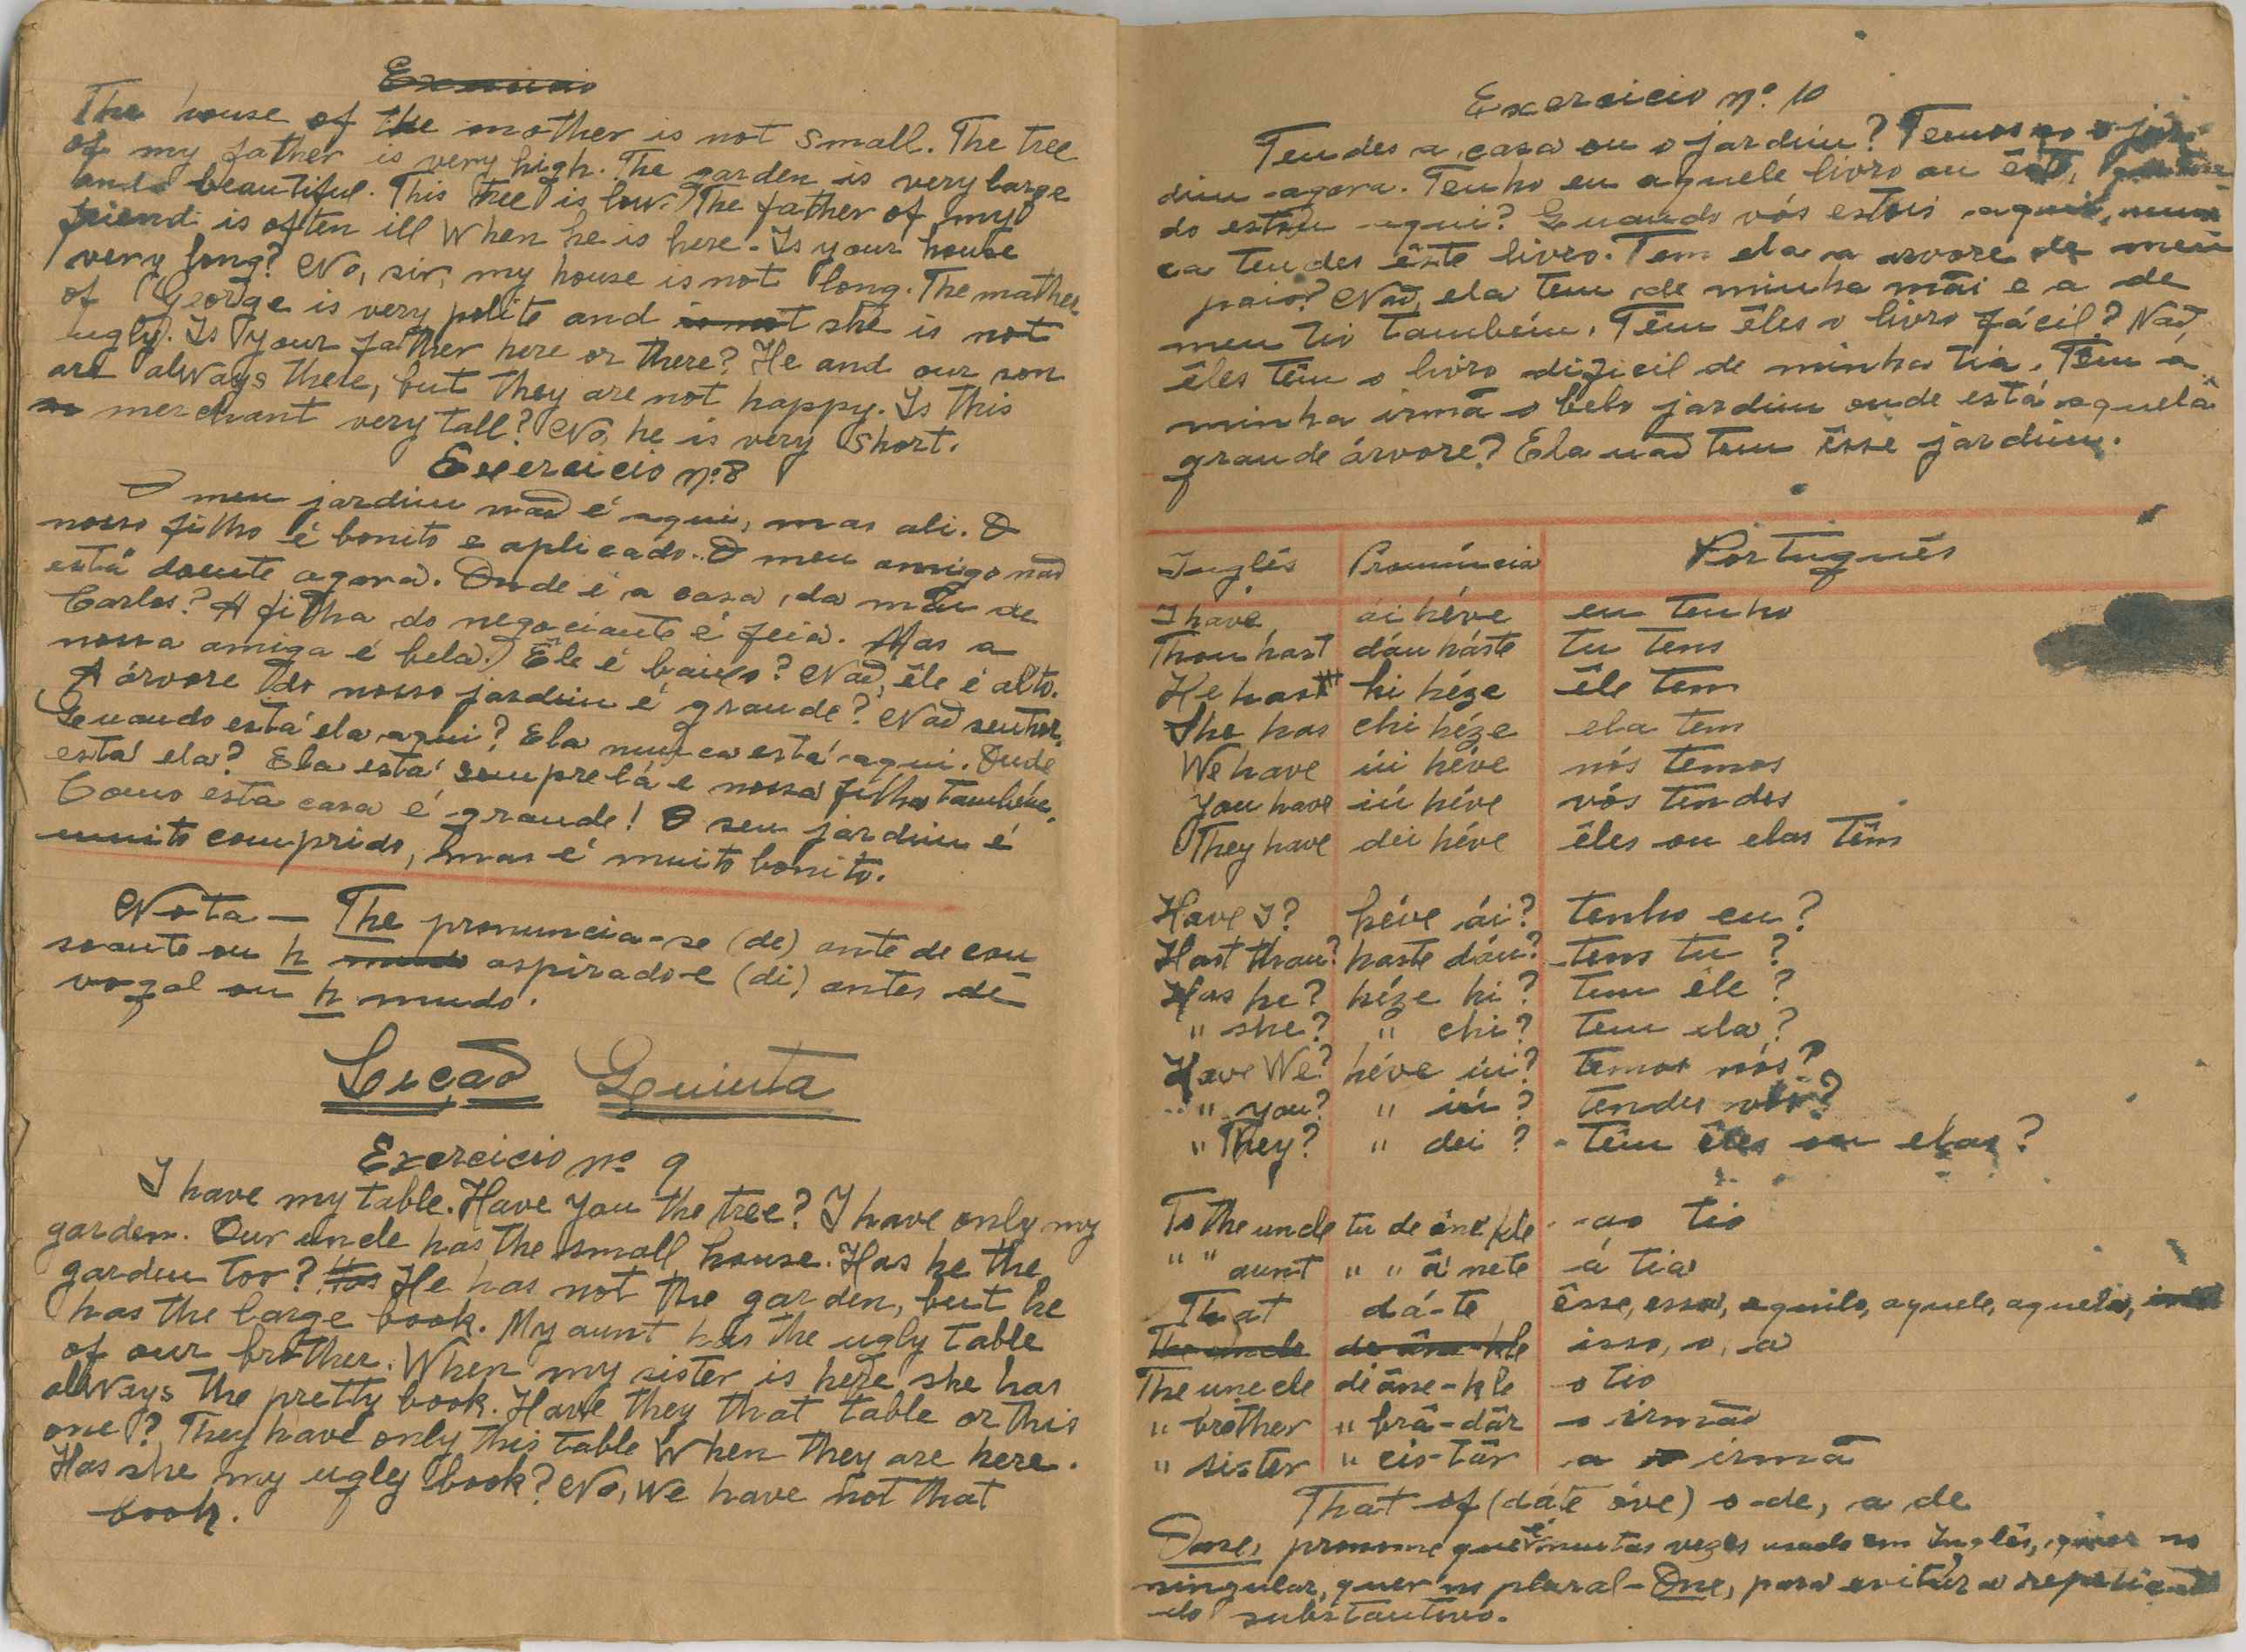 Exercicio
The house of the mother is not small. The tree
of my father is very high. The garden is very large
and beautiful. This tree is low. The father of my
friend is often ill When he is here. Is your house
very long? No, sir, my house is not long. The mother
of George is very polite and is not she is not
ugly. Is your father here or there? He and our son
are always there, but they are not happy. Is this
merchant very tall? No, he is very short.
Exercicio nº 8
O meu jardim não é aqui, mas ali. O
nosso filho é bonito e aplicado. O meu amigo não
está doente agora. Onde é a casa da mãi de
Carlos? A filha do negociante é feia. Mas a
nossa amiga é bela. Êle é baixo? Não, êle é alto.
A árvore do nosso jardim é grande? Não senhor.
Quando está ela aqui? Ela nunca está aqui. Onde
está ela? Ela está sempre lá e nossa filha também.
Como esta casa é grande! O seu jardim é
muito comprido, mas é muito bonito.
Nota — The pronuncia-se (de) ante de con
soante ou h mudo aspirado e (di) antes de
vogal ou h mudo.
Lição Quinta
Exercicio nº 9
I have my table. Have you the tree? I have only my
garden. Our uncle has the small house. Has he the
garden too? Has He has not the garden, but he
has the large book. My aunt has the ugly table
of our brother. When my sister is here she has
always the pretty book. Have they that table or this
one? They have only this table When they are here.
Has she my ugly book? No, we have not that
book.
Exercicio nº 10
Tendes a casa ou o jardim? Temos o jar
dim agora. Tenho eu aquele livro ou êste,
do estou aqui? Quando vós estais aqui, nun
ca tendes êste livro. Tem ela a arvore de meu
pais? Não, ela tem de minha mãi e a de
meu tio também. Têm êles o livro fácil? Não,
êles têm o livro dificil de minha tia. Tem a
minha irmã o belo jardim onde está aquela
grande árvore? Ela não tem êsse jardim.
Inglês Pronúncia Português
I have ái héve eu tenho
Thou hast dáu háste tu tens
He has hi héze êle tem
She has chi héze ela tem
We have úi héve nós temos
You have iú héve vós tendes
They have dei héve êles ou elas têm
Have I? héve ái? tenho eu?
Hast thou? haste dáu? tens tu?
Has he? héze hi? tem êle?
" she? " chi? tem ela?
Have We? héve úi? temos nós?
" you? " iú? tendes vós?
" They? " dei? têm êles ou elas?
To the uncle tu de âne kle ao tio
" " aunt " " â nete á tia
That dá-te êsse, essa, aquilo, aquele, aquela,
The uncle de âne-kle isso, o, a
The uncle di âne-kle o tio
" brother " brâ-dâr o irmão
" sister " cis-târ a irmã
That of (dáte óve) o de, a de
One, pronome que é muitas vezes usado em Inglês, quer no
singular, quer no plural - One, para evitar a repetição
do substantivo.